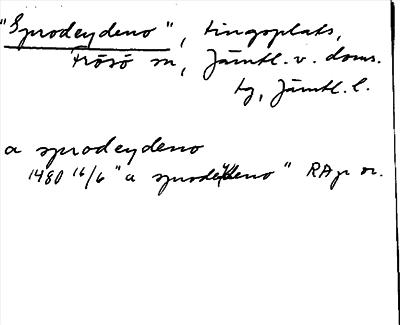 "Sprodeydeno", tingsplats,
Frösö sn, Jämtl. v. doms.
tg, Jämtl. l.
a sprodeydeno
1480 16/6 "a sprodeydeno" RAp or.